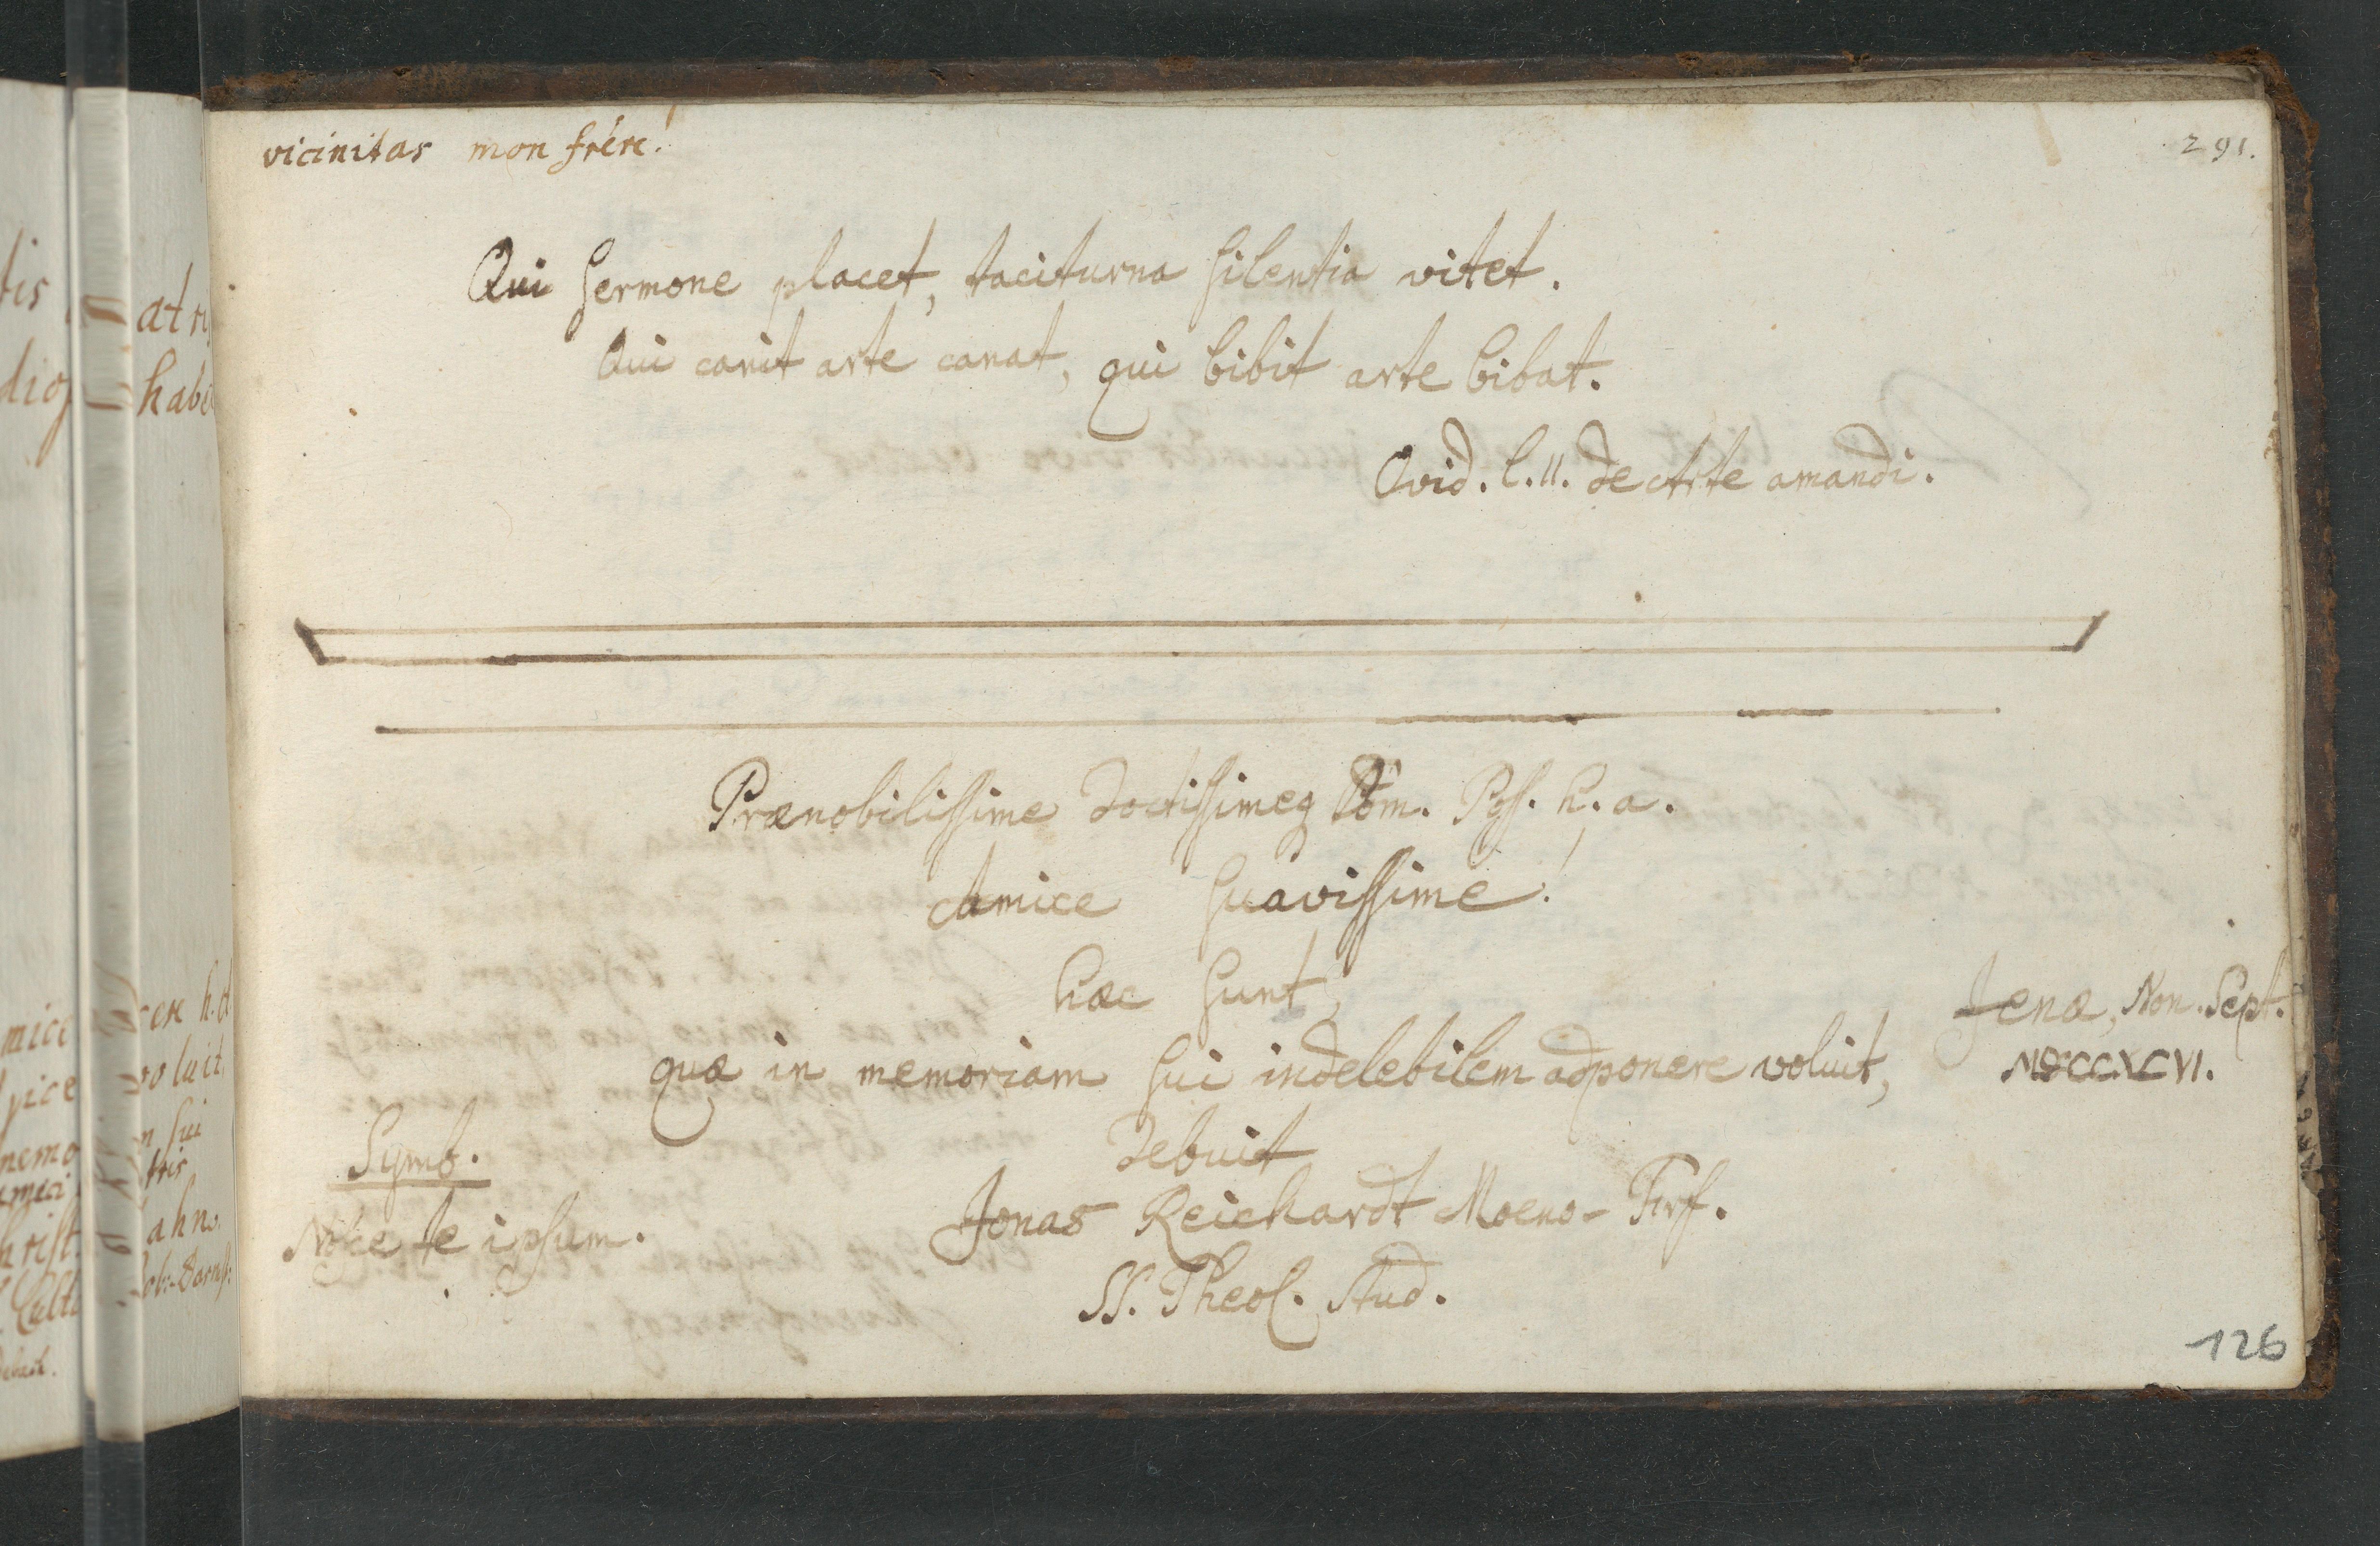 vicinitas mon frére!
291.
Qui Sermone placet, taciturna Silentia vitet.
Qui canit arte canat, qui bibit arte bibat.
Ovid. l. II. de Arte amandi.
Prænobilissime doctissimeq Dom. Poss. h. a.
Amice Suavissime!
hæc Sunt,
quæ in memoriam Sui indelebilem adponere voluit,
debuit
Jonas Reichardt Moeno-Frf.
SS. Theol. Stud.
Jenæ, Non. Sept.
MDCCXCVI.
Symb.
Nosce te ipsum.
126